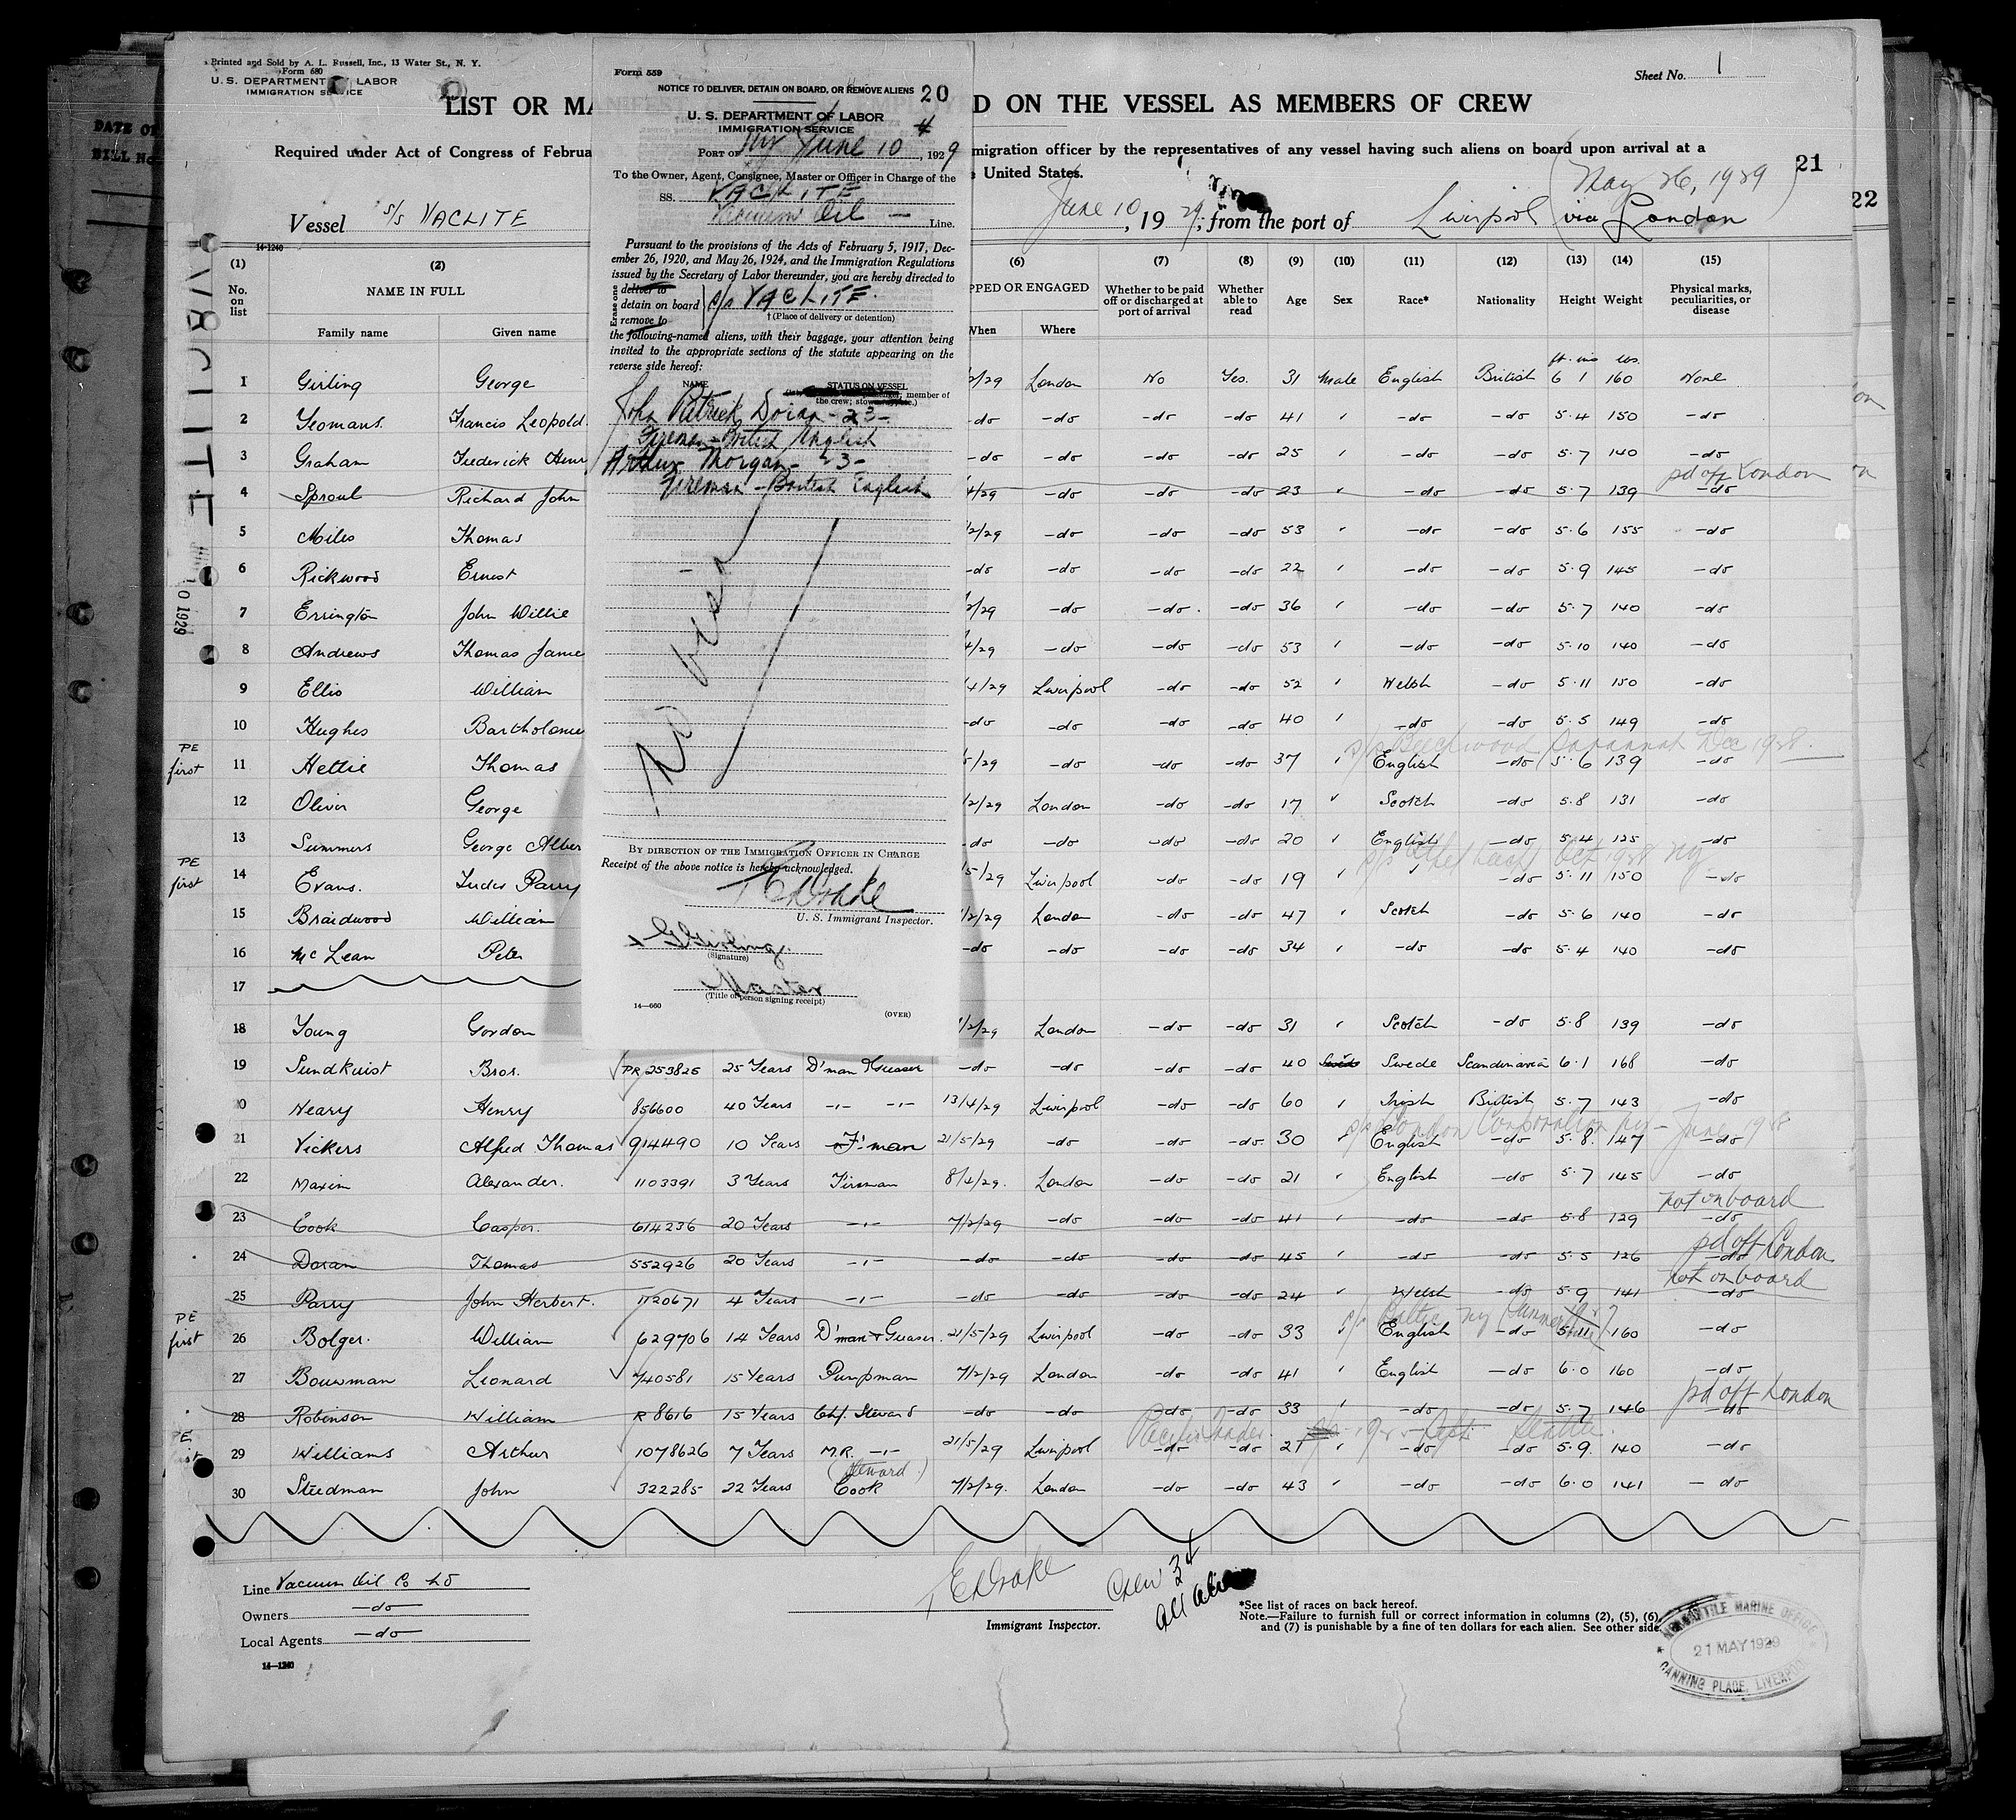 Printed and Sold by A. L. Russell, Inc., 13 Water St., N. Y.
Form 680
U. S. DEPARTMENT OF LABOR
IMMIGRATION SERVICE
Sheet No. 1
LIST OR MA
D ON THE VESSEL AS MEMBERS OF CREW
Required under Act of Congress of Februa
migration officer by the representatives of any vessel having such aliens on board upon arrival at a
United States.
21
22
(May 26, 1929)
Vessel S/S VACLITE
June 10, 1929, from the port of Liverpool (via London
14-1240
DATE OF
BILL No.
VACLITE
0 1929
Form 559
NOTICE TO DELIVER, DETAIN ON BOARD, OR REMOVE ALIENS 20
U. S. DEPARTMENT OF LABOR 4
IMMIGRATION SERVICE
PORT OF NY June 10, 1929
To the Owner, Agent, Consignee, Master or Officer in Charge of the
SS. VACLITE
Vacuum Oil — Line.
Pursuant to the provisions of the Acts of February 5, 1917, Dec-
ember 26, 1920, and May 26, 1924, and the Immigration Regulations
issued by the Secretary of Labor thereunder, you are hereby directed to
Erase one
deliver to
detain on board S/S VACLITE.
remove to
† (Place of delivery or detention)
the following-named aliens, with their baggage, your attention being
invited to the appropriate sections of the statute appearing on the
reverse side hereof:
NAME STATUS ON VESSEL
member of
the crew;
John Patrick Doran - 23 -
Fireman - British English
Arthur Morgan - 23 -
Fireman - British English
No
BY DIRECTION OF THE IMMIGRATION OFFICER IN CHARGE
Receipt of the above notice is hereby acknowledged.
Drake
U. S. Immigrant Inspector.
G Girling
(Signature)
Master
(Title of person signing receipt)
14—660
(OVER)
(1) (2) (6) (7) (8) (9) (10) (11) (12) (13) (14) (15)
No. on list NAME IN FULL PPED OR ENGAGED Whether to be paid off or discharged at port of arrival Whether able to read Age Sex Race* Nationality Height Weight Physical marks, peculiarities, or disease
Family name Given name When Where
ft. ins lbs.
1 Girling George 2/29 London No Yes. 31 Male English British 6 1 160 None
2 Yeomans. Francis Leopold -do -do -do -do 41 " -do -do 5.4 150 -do
3 Graham Frederick Henr -do -do -do -do 25 " -do -do 5.7 140 -do
pd off London
4 Sproul Richard John 4/29 -do -do -do 23 " -do -do 5.7 139 -do
5 Miles Thomas /2/29 -do -do -do 53 " -do -do 5.6 155 -do
6 Rickwood Ernest -do -do -do -do 22 " -do -do 5.9 145 -do
7 Errington John Willie 2/29 -do -do. -do 36 " -do -do 5.7 140 -do
8 Andrews Thomas Jame 4/29 -do -do -do 53 " -do -do 5.10 140 -do
9 Ellis William /4/29 Liverpool -do -do 52 " Welsh -do 5.11 150 -do
10 Hughes Bartholome -do -do -do -do 40 " -do -do 5.5 149 -do
s/s Beechwood Savannah Dec 1928.
PE first 11 Hettie Thomas 5/29 -do -do -do 37 " English -do 5.6 139 -do
12 Oliver George /2/29 London -do -do 17 " Scotch -do 5.8 131 -do
13 Summers George Alber -do -do -do -do 20 " English -do 5.4 125 -do
Oct 1928 NY
PE first 14 Evans. Parry /5/29 Liverpool -do -do 19 " " -do 5.11 150 -do
15 Braidwood William /2/29 London -do -do 47 " Scotch -do 5.6 140 -do
16 McLean Peter -do -do -do -do 34 " -do -do 5.4 140 -do
17
18 Young Gordon /2/29 London -do -do 31 " Scotch -do 5.8 139 -do
19 Sundkvist Bror. PR 253825 25 Years D'man & Greaser -do -do -do -do 40 Swede Scandinavia 6.1 168 -do
20 Neary Henry 856600 40 Years -"- -"- 13/4/29 Liverpool -do -do 60 " Irish British 5.7 143 -do
s/s London Corporation NY - June 1928
21 Vickers Alfred Thomas 914490 10 Years F'man 21/5/29 -do -do -do 30 " English -do 5.8. 147 -do
22 Maxim Alexander. 1103391 3 Years Fireman 8/4/29. London -do -do 21 " English -do 5.7 145 -do
not on board
23 Cook Casper. 614236 20 Years -"- 7/2/29 -do -do -do 41 " -do -do 5.8 129 -do
pd off London
24 Doran Thomas 552926 20 Years -"- -do -do -do -do 45 " -do -do 5.5 126 -do
not on board
25 Parry John Herbert. 1120671 4 Years -"- -do -do -do -do 24 " Welsh -do 5.9 141 -do
s/s Baltic NY (Summer
PE first 26 Bolger. William 629706 14 Years D'man & Greaser. 21/5/29 Liverpool -do -do 33 " English -do 5.11 160 -do
27 Bouwman Leonard 740581 15 Years Pumpman 7/2/29 London -do -do 41 " English -do 6.0 160 -do
pd off London
28 Robinson William R 8616 15 Years Chf. Steward -do -do -do -do 33 " -do -do 5.7 146 -do
Pacific Trader Seattle.
29 Williams Arthur 1078626 7 Years M.R. -"- 21/5/29 Liverpool -do -do 21 " -do -do 5.9. 140 -do
(Steward.)
30 Steedman John 322285 22 Years Cook 7/2/29. London -do -do 43 " -do -do 6.0 141 -do
Line Vacuum Oil Co Ld
Owners -do-
Local Agents -do-
14—1240
Drake
Immigrant Inspector.
Crew 34
all alien
*See list of races on back hereof.
Note.—Failure to furnish full or correct information in columns (2), (5), (6),
and (7) is punishable by a fine of ten dollars for each alien. See other side.
MERCANTILE MARINE OFFICE
21 MAY 1929
CANNING PLACE, LIVERPOOL